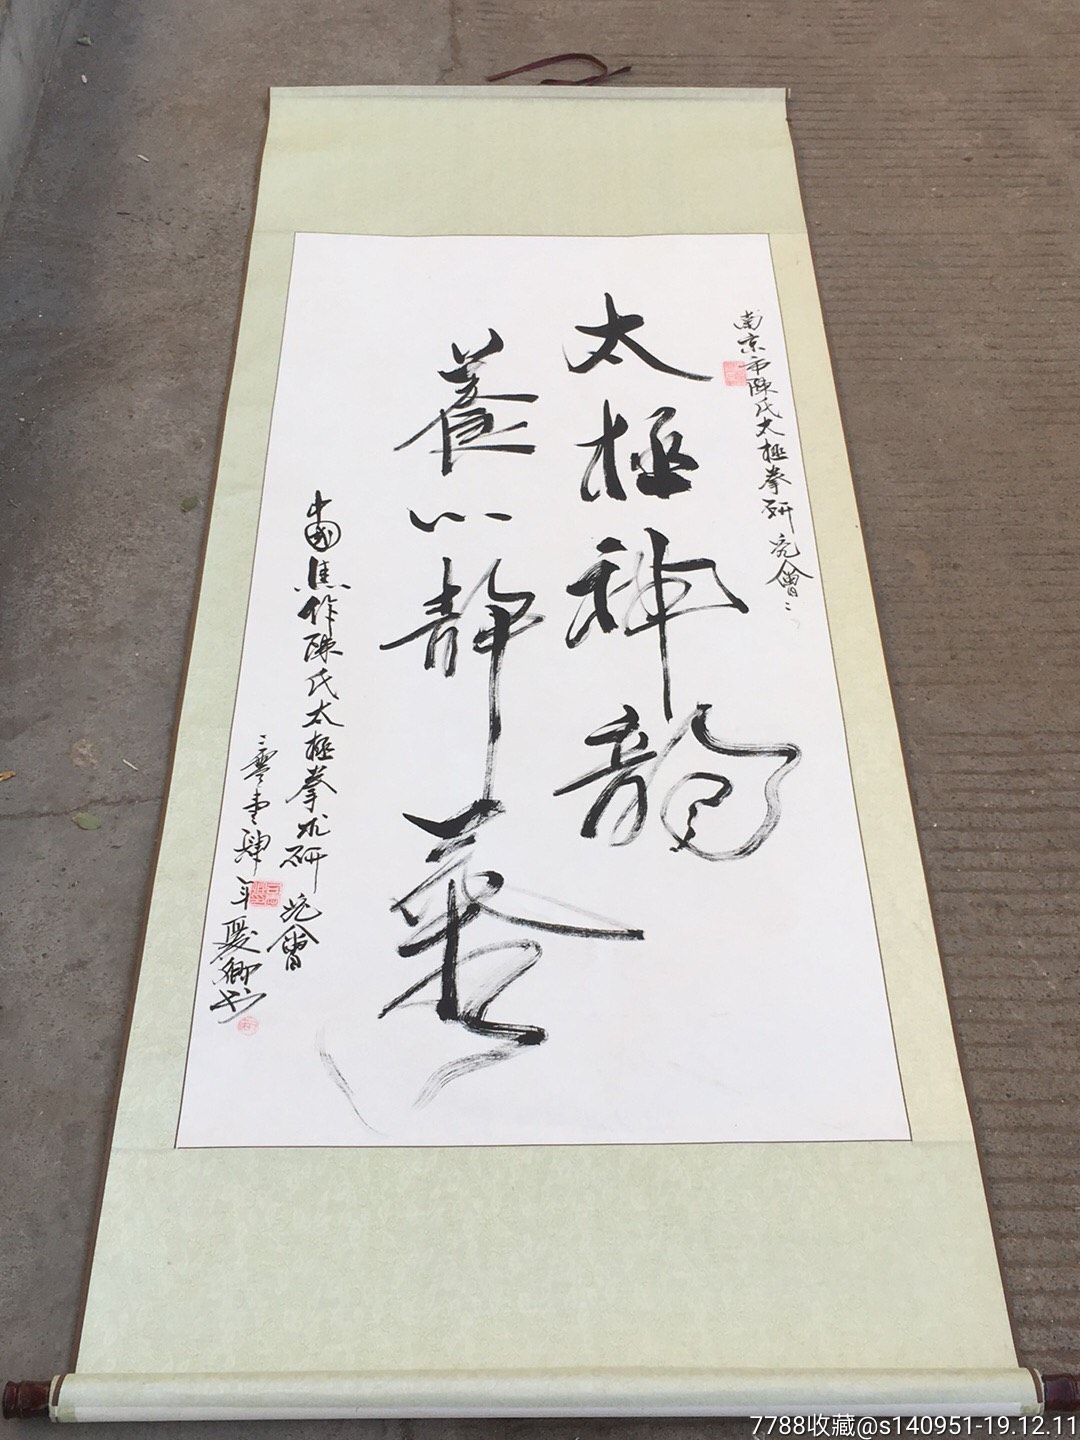 南京市陳氏太極拳研究會：
太極神韻
養心靜華
中國焦作陳氏太極拳术研究會
二零壹肆年夏卿书
7788收藏@s140951-19.12.11